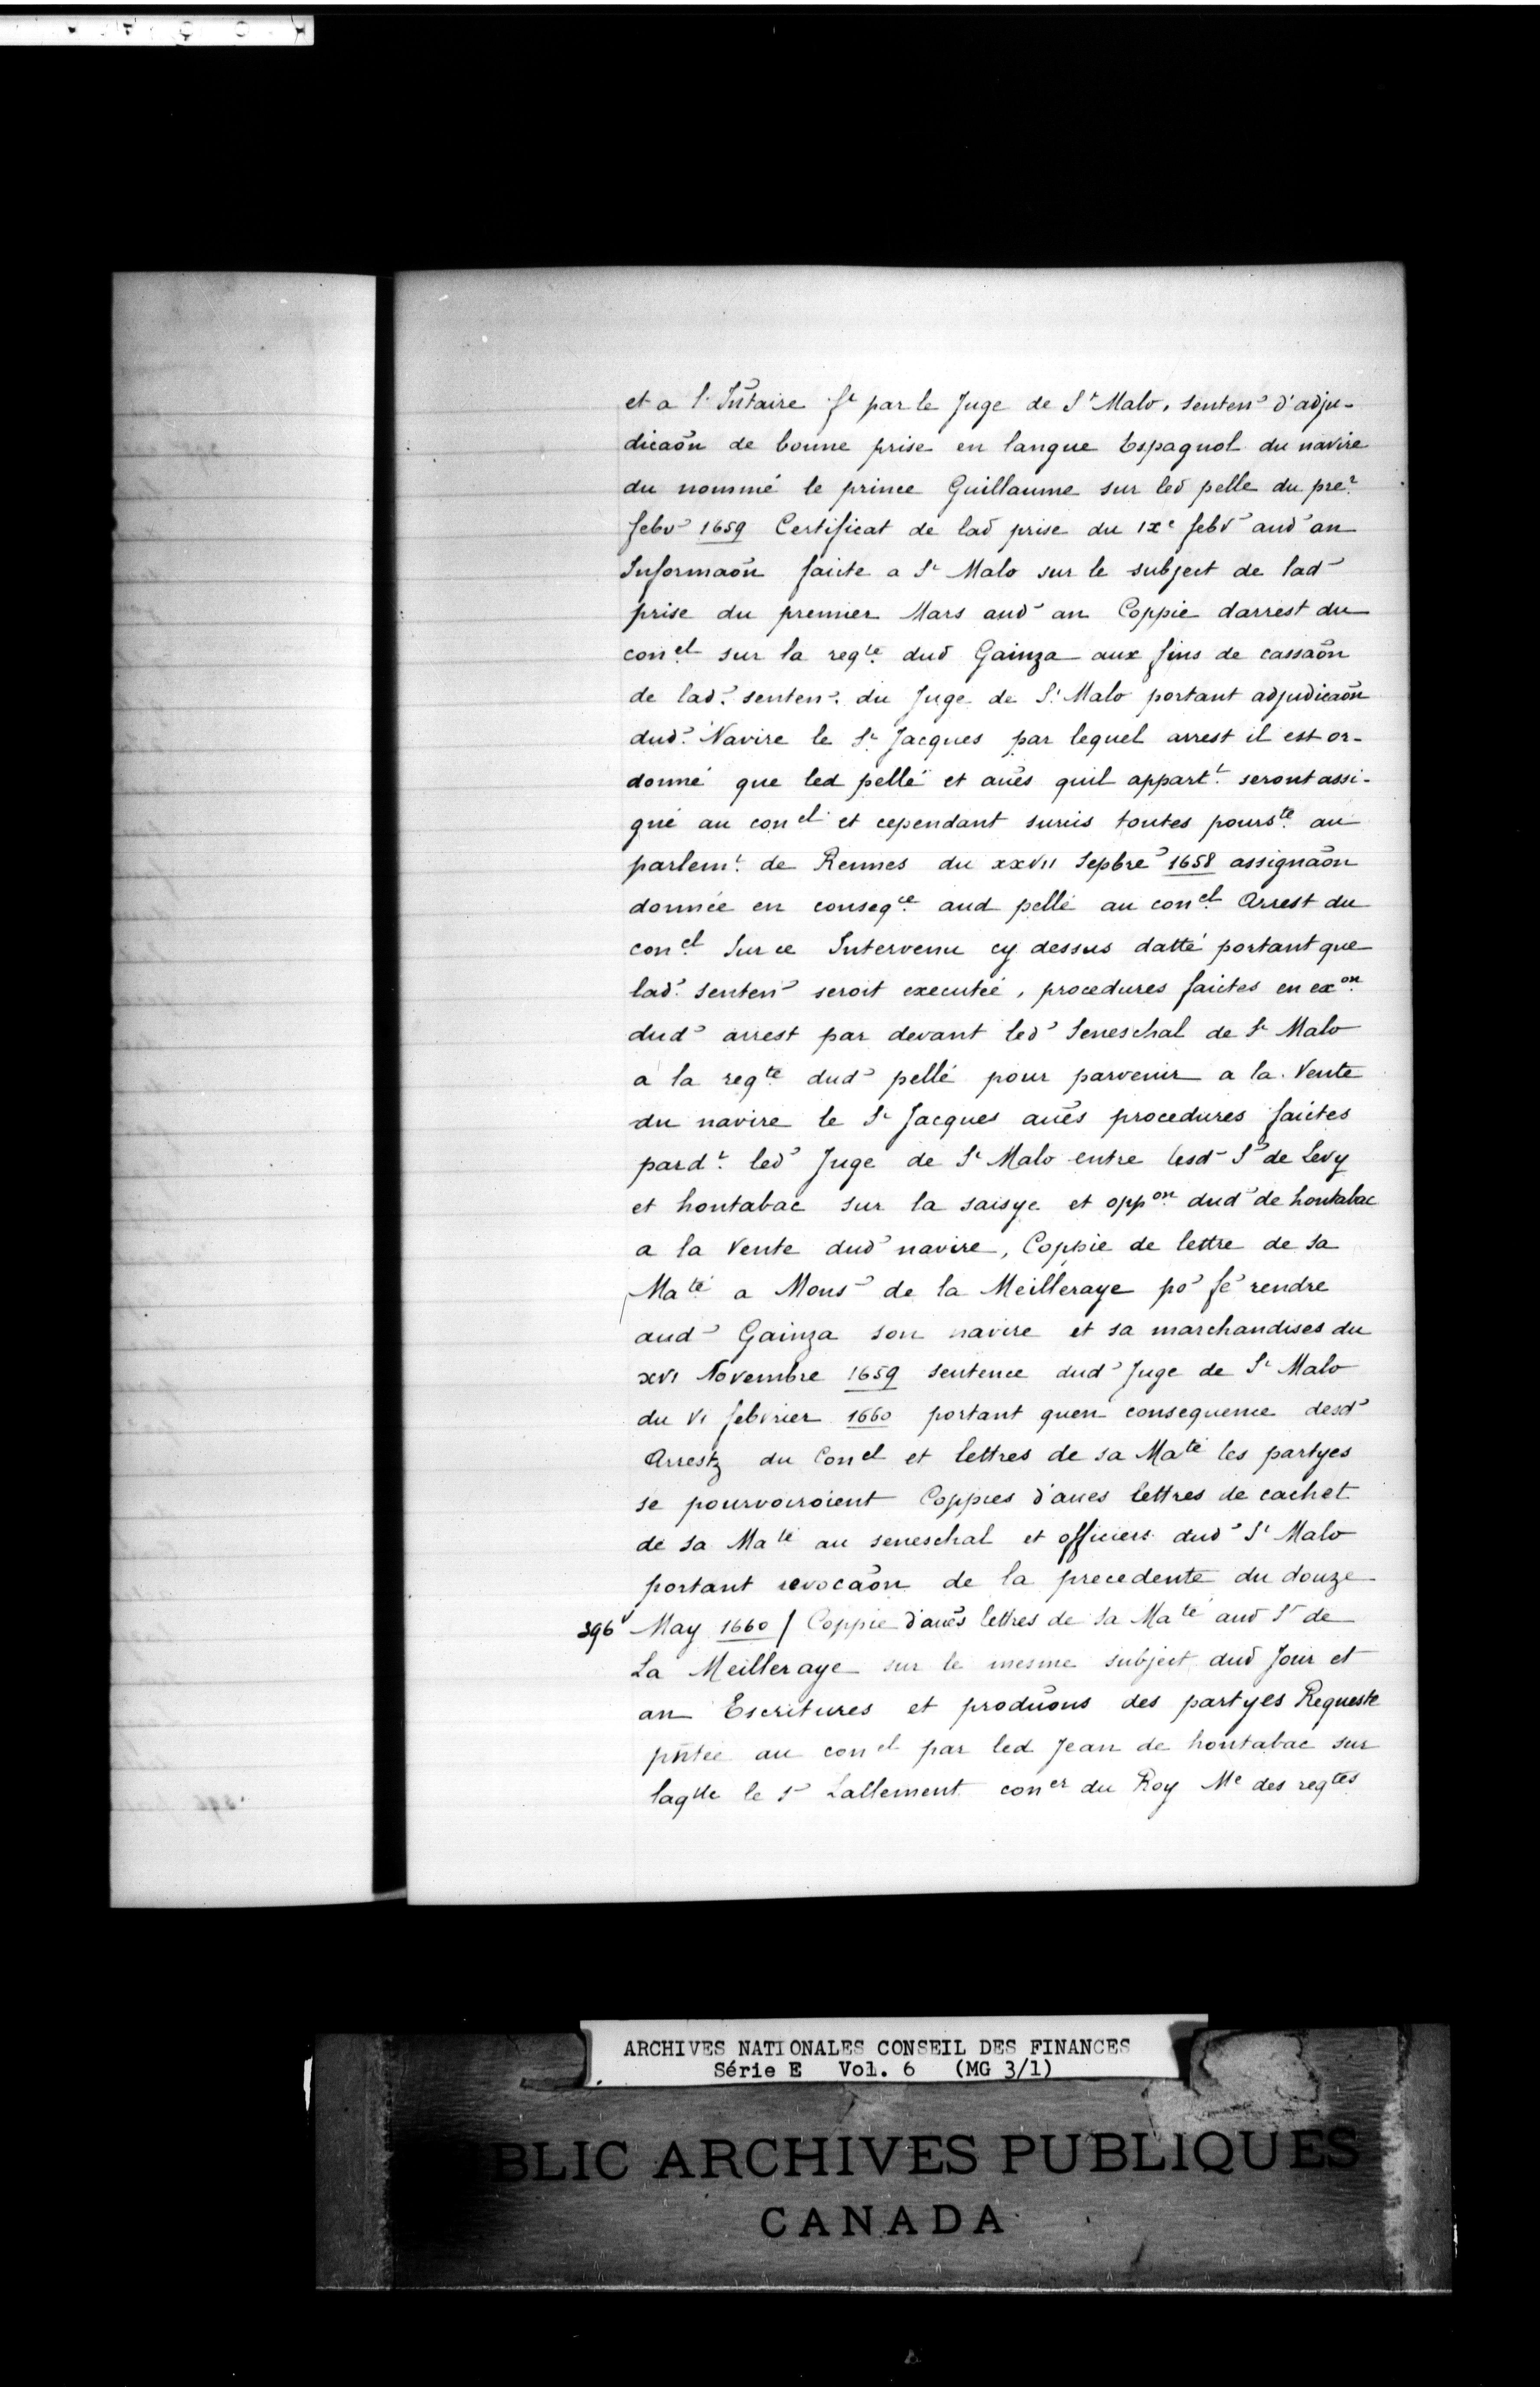 et a l'Intaire ft par le Juge de St Malo, senten d'adju-
dicaõn de bonne prise en langue Espagnol du navire
du nommé le prince Guillaume sur led pelle du prer
febv 1659 Certificat de lad prise du IXe febv aud an
Informaõn faicte a St Malo sur le subject de lad
prise du premier Mars aud an Coppie darrest du
conel sur la reqte dud Gainza aux fins de cassaõn
de lad. senten. du Juge de St Malo portant adjudicaõn
dud. Navire le St Jacques par lequel arrest il est or-
donné que led pellé et auẽs quil appart.t seront assi-
gné au conel et cependant surcis toutes pourste au
parlemt de Rennes du xxvii Sepbre 1658 assignaõn
donnée en conseqce aud pellé au conel Arrest du
conel Sur ce Intervenu cy dessus datté portant que
lad. senten seroit executée, procedures faictes en exon
dud arrest par devant led Seneschal de St Malo
a la reqte dud pellé pour parvenir a la Vente
du navire le St Jacques auẽs procedures faictes
pardt led Juge de St Malo entre lesd Sr de Levy
et hontabac sur la saisye et oppon dud de hontabac
a la Vente dud navire, Coppie de lettre de sa
Maté a Mons de la Meilleraye po fe rendre
aud Gainza son navire et sa marchandises du
xvi Novembre 1659 sentence dud Juge de St Malo
du VI febvrier 1660 portant quen consequence desd
Arrestz du Conel et lettres de sa Maté les partyes
se pourvoiroient Coppies d'aues lettres de cachet
de sa Maté au seneschal et officiers dud St Malo
portant revocaõn de la precedente du douze
396v May 1660 / Coppie d'auẽs lettres de Sa Maté aud Sr de
La Meilleraye sur le mesme subject dud Jour et
an Escritures et produõns des partyes Requeste
pñtée au conel par led Jean de hontabac sur
laqlle le Sr Lallement coner du Roy Me des reqtes
ARCHIVES NATIONALES CONSEIL DES FINANCES
Série E Vol. 6 (MG 3/1)
BLIC ARCHIVES PUBLIQUES
CANADA